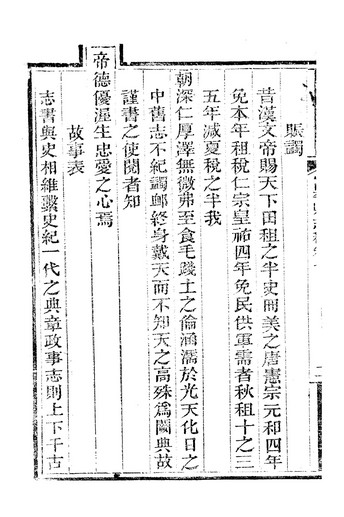 賑蠲
昔漢文帝賜天下田租之半史冊美之唐憲宗元和四年
免本年租稅仁宗皇祐四年免民供軍需者秋租十之三
五年減夏稅之半我
朝深仁厚澤無微弗至食毛踐土之倫涵濡於光天化日之
中舊志不紀蠲卹終身戴天而不知天之高殊為闕典故
謹書之使閱者知
帝德優渥生忠愛之心焉
故事表
志書與史相維繫史紀一代之典章政事志則上下千古